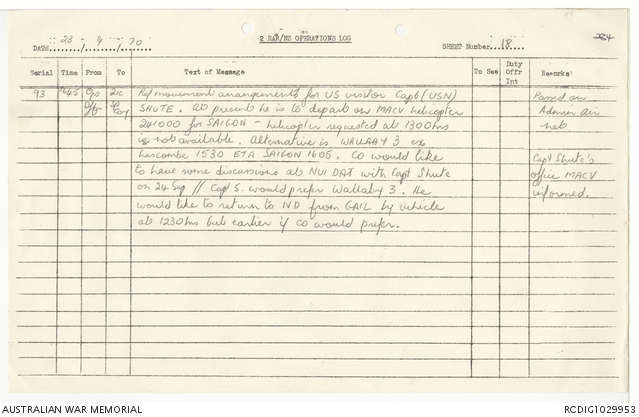 2 RAR/NZ OPERATIONS LOG
Date: 23 / 9 / 70
SHEET Number 18
Serial Time From To Text of Message To See Duty Offr Int Remarks
93 1645 2ic Ref movement arrangements for US visitor Capt (USN) Passed on
SHUTE. At present he is to depart on MACV helicopter Admin air
241000 for SAIGON - helicopter requested at 1300hrs net.
is not available. Alternative is WALLABY 3 ex
Luscombe 1530 ETA SAIGON 1605. CO would like Capt Shute's
to have some discussions at NUI DAT with Capt Shute office MACV
on 24 Sep // Capt S. would prefer Wallaby 3. He informed.
would like to return to ND from GAIL by vehicle
at 1230hrs but earlier if CO would prefer.
AUSTRALIAN WAR MEMORIAL
RCDIG1029953